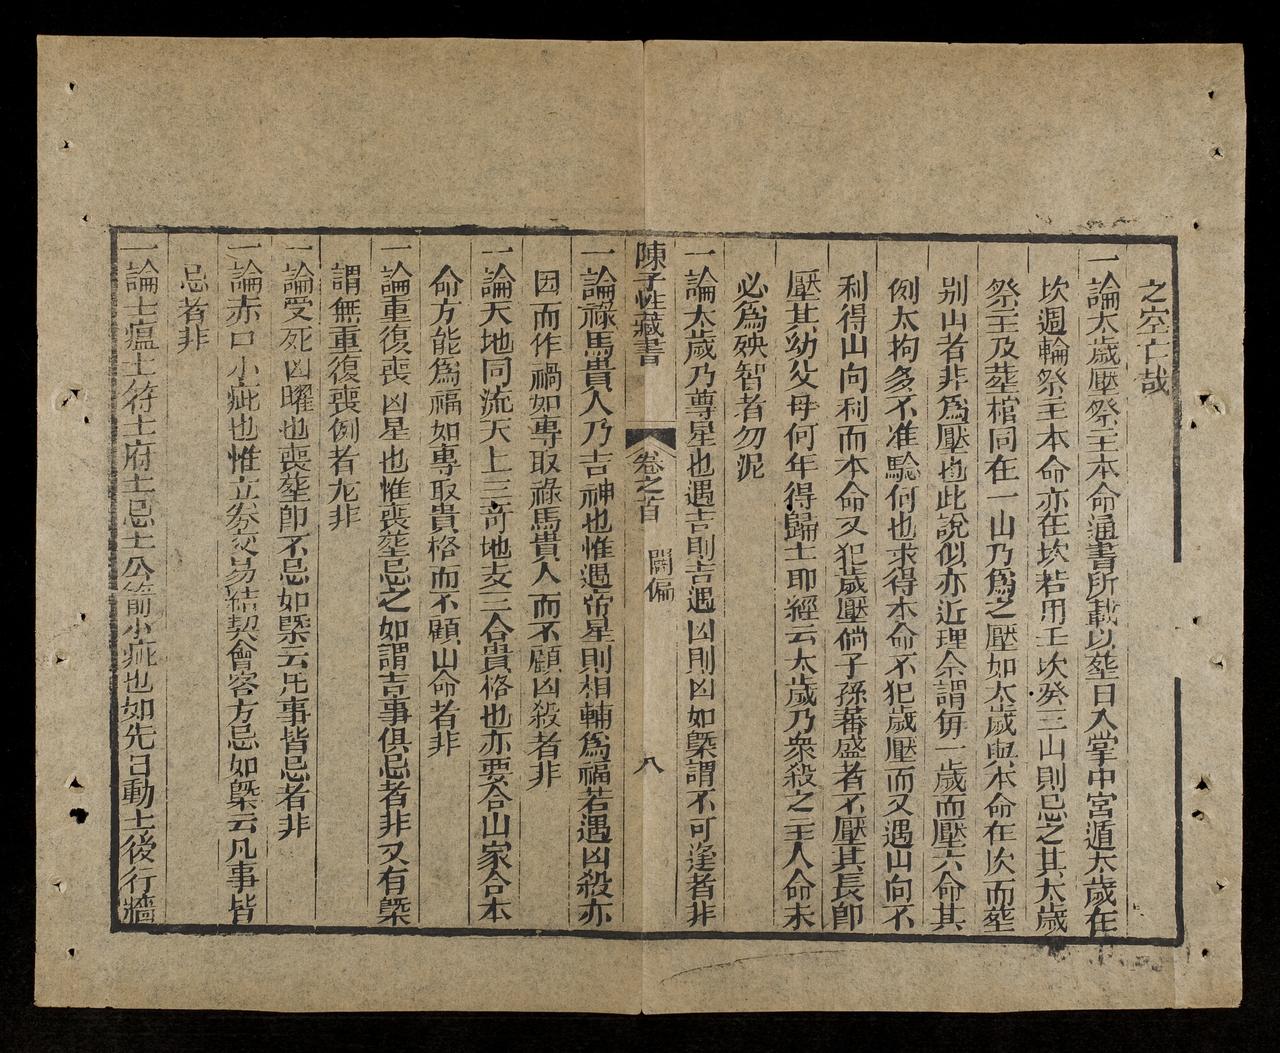 之空亡哉
一論太歲壓祭主本命通書所載以塟日入掌中宮遁太歲在
坎週輪祭主本命亦在坎若用壬坎癸三山則忌之其太歲
祭主及塟棺同在一山乃為之壓如太歲與本命在坎而塟
别山者非為壓也此說似亦近理余謂毎一歲而壓六命其
例太拘多不准驗何也求得本命不犯歲壓而又遇山向不
利得山向利而本命又犯歲壓倘子孫蕃盛者不壓其長卽
壓其幼父母何年得歸土耶經云太歲乃衆殺之主人命未
必為殃智者勿泥
一論太歲乃尊星也遇吉則吉遇凶則凶如槩謂不可逢者非
陳子性藏書 卷之首 闢偏 八
一論祿馬貴人乃吉神也惟遇帝星則相輔為福若遇凶殺亦
因而作禍如專取祿馬貴人而不顧凶殺者非
一論天地同流天上三竒地支三合貴格也亦要合山家合本
命方能為福如專取貴格而不顧山命者非
一論重復喪凶星也惟喪塟忌之如謂吉事俱忌者非又有槩
謂無重復喪例者尤非
一論受死凶曜也喪塟卽不忌如槩云凡事皆忌者非
一論赤口小疵也惟立券交易結契會客方忌如槩云凡事皆
忌者非
一論土瘟土符土府土忌土公箭小疵也如先日動土後行牆